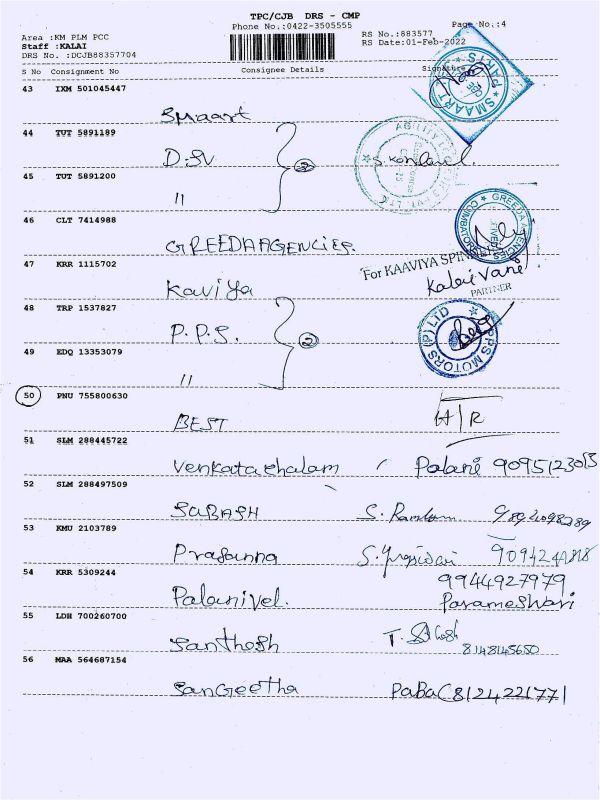 TPC/CJB DRS - CMP
Phone No.:0422-3505555
Page No.:4
Area :KM PLM PCC
RS No.:883577
Staff :KALAI
RS Date:01-Feb-2022
DRS No. :DCJB88357704
S No Consignment No Consignee Details Signature
43 IXM 501045447
Smaart
SMAART
44 TUT 5891189
D.SV
45 TUT 5891200
"
46 CLT 7414988
GREEDA AGENCIES.
GREEDA AGENCIES
COIMBATORE
47 KRR 1115702
Kaviya
For KAAVIYA
Kalaivani
PARTNER
48 TRP 1537827
P.P.S.
2
PPS MOTORS (P) LTD
49 EDQ 13353079
"
50 PNU 755800630
BEST
H/R
51 SLM 288445722
Venkatachalam Palani
52 SLM 288497509
SUBASH
53 KMU 2103789
Prasanna
54 KRR 5309244
9944927979
Palanivel. Parameshwari
55 LDH 700260700
Santhosh
8148145650
56 MAA 564687154
Sangeetha 8124221771